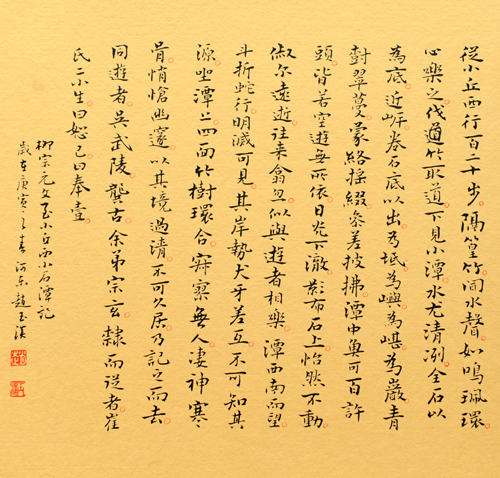 從小丘西行百二十步隔篁竹聞水聲如鳴珮環
心樂之伐竹取道下見小潭水尤清冽全石以
為底近岸卷石底以出為坻為嶼為嵁為巖青
樹翠蔓蒙絡搖綴參差披拂潭中魚可百許
頭皆若空遊無所依日光下澈影布石上怡然不動
俶尔遠逝往來翕忽似與遊者相樂潭西南而望
斗折蛇行明滅可見其岸勢犬牙差互不可知其
源坐潭上四面竹樹環合寂寥無人凄神寒
骨悄愴幽邃以其境過清不可久居乃記之而去
同遊者吳武陵龔古余弟宗玄隸而從者崔
氏二小生曰恕己曰奉壹
柳宗元文至小丘西小石潭記
歲在庚寅之春河東趙玉